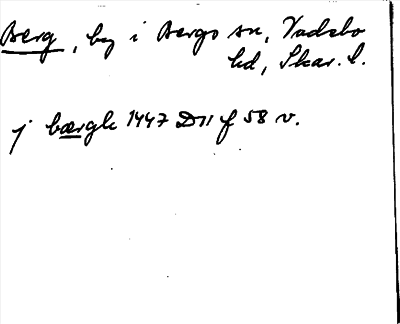 Berg, by i Bergs sn, Vadsbo
hd, Skar. l.
j bærgh 1447 D11 f 58 v.